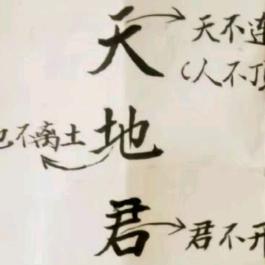 天
天不连
(人不顶
地
也不离土
君
君不开